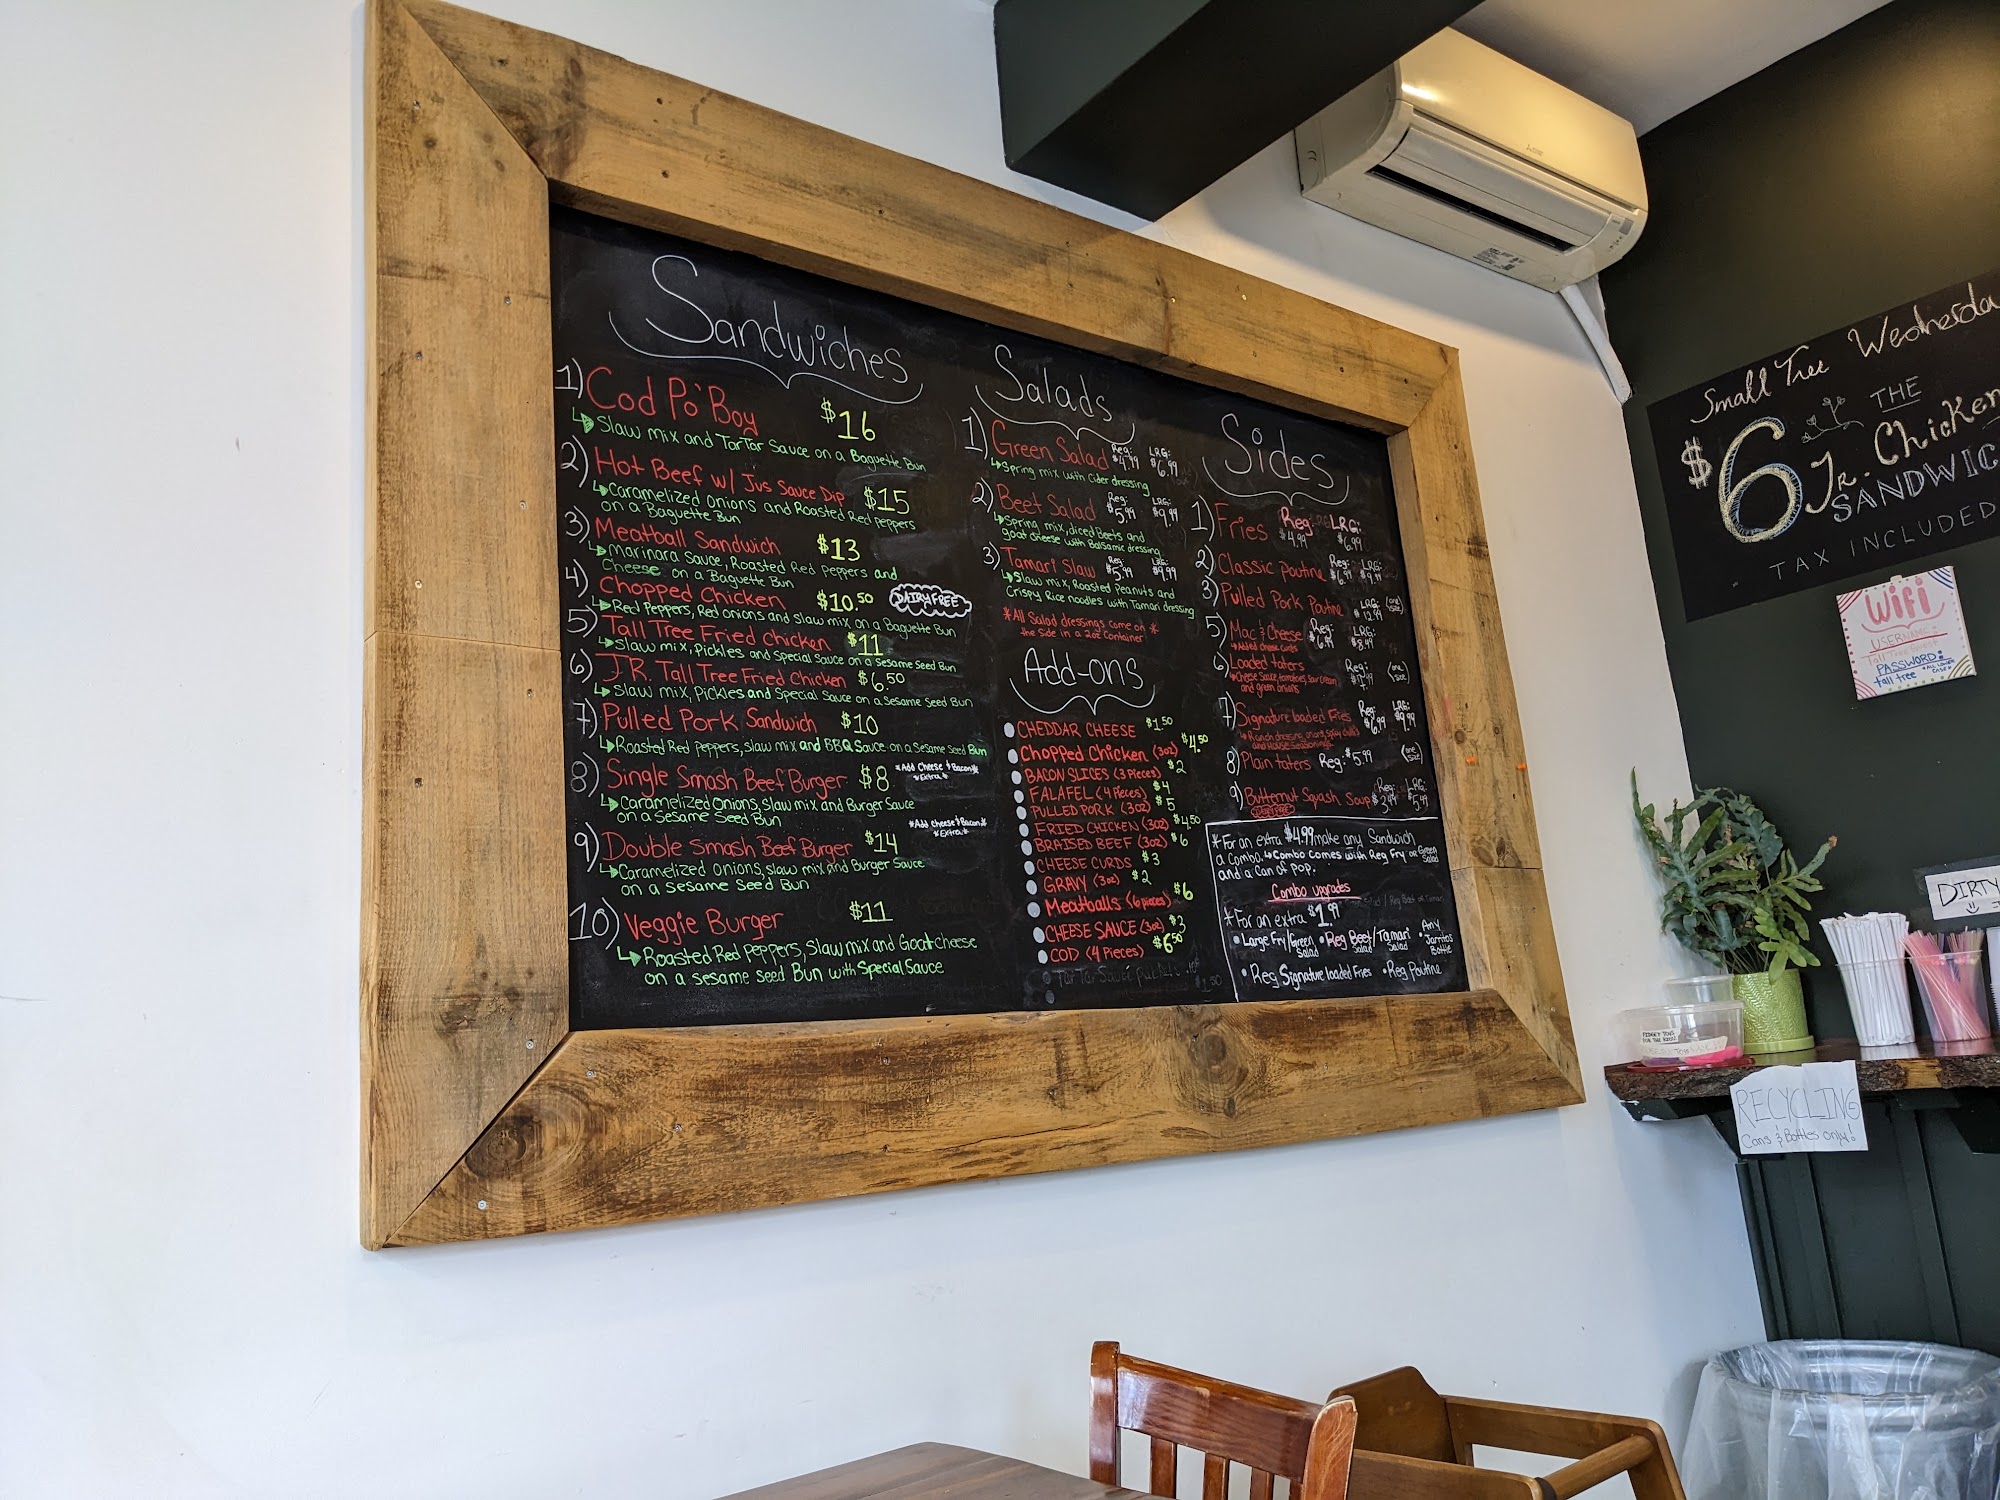 Sandwiches
1) Cod Po'Boy $16
Slaw mix and TarTar Sauce on a Baguette Bun
2) Hot Beef w/ Jus Sauce Dip $15
Caramelized onions and Roasted Red peppers
on a Baguette Bun
3) Meatball Sandwich $13
Marinara Sauce, Roasted Red Peppers and
Cheese on a Baguette Bun
4) Chopped Chicken $10.50 DAIRY FREE
Red Peppers, Red onions and slaw mix on a Baguette Bun
5) Tall Tree Fried Chicken $11
Slaw mix, Pickles and Special Sauce on a Sesame Seed Bun
6) J.R. Tall Tree Fried Chicken $6.50
Slaw mix, Pickles and Special Sauce on a Sesame Seed Bun
7) Pulled Pork Sandwich $10
Roasted Red peppers, slaw mix and BBQ Sauce on a Sesame Seed Bun
8) Single Smash Beef Burger $8 *Add Cheese & Bacon*
*Extra*
Caramelized Onions, slaw mix and Burger Sauce
on a Sesame Seed Bun
*Add Cheese & Bacon*
*Extra*
9) Double Smash Beef Burger $14
Caramelized Onions, slaw mix and Burger Sauce
on a Sesame Seed Bun
10) Veggie Burger $11
Roasted Red Peppers, Slaw mix and Goat cheese
on a sesame seed Bun with Special Sauce
Salads
1) Green Salad Reg: $4.99 LRG: $6.99
Spring mix with Cider dressing
2) Beet Salad Reg: $5.99 LRG: $9.99
Spring mix, diced Beets and
goat cheese with Balsamic dressing
3) Tamari Slaw Reg: $5.99 LRG: $9.99
Slaw mix, Roasted Peanuts and
Crispy Rice noodles with Tamari dressing
*All Salad dressings come on *
the side in a 2oz container
Add-ons
CHEDDAR CHEESE $1.50
Chopped Chicken (3oz) $4.50
BACON SLICES (3 Pieces) $2
FALAFEL (4 Pieces) $4
PULLED PORK (3oz) $5
FRIED CHICKEN (3oz) $4.50
BRAISED BEEF (3oz) $6
CHEESE CURDS $3
GRAVY (3oz) $2
Meatballs (6 pieces) $6
CHEESE SAUCE (3oz) $3
COD (4 Pieces) $6.50
Tar Tar Sauce
Sides
1) Fries Reg: $4.99 LRG: $6.99
2) Classic Poutine Reg: $6.99 LRG: $9.99
3) Pulled Pork Poutine LRG: $12.99 (one size)
5) Mac & Cheese Reg: $6.99 LRG: $8.99
Added cheese curds
6) Loaded taters Reg: (one size)
Cheese Sauce, tomatoes, Sour Cream
and green onions
7) Signature loaded Fries Reg: $6.99 LRG: $9.99
Ranch dressing, onions, spicy chilli's
and HOUSE Seasonings
8) Plain taters Reg: $5.99 (one size)
9) Butternut Squash Soup Reg: $3.99 LRG: $5.99
DAIRY FREE
*For an extra $4.99 make any Sandwich
a Combo. Combo comes with Reg Fry or Green Salad
and a Can of pop.
Combo upgrades
*For an extra $1.99
• Large Fry/Green Salad • Reg Beet/Tamari Salad • Any Jarritos Bottle
• Reg Signature loaded Fries • Reg Poutine
Small Tree Wednesda
$6 THE
Jr. Chicken
SANDWIC
TAX INCLUDED
Wifi
USERNAME:
PASSWORD:
tall tree
*ALL LOWER CASE*
DIRTY
FIDGET TOYS
FOR THE KIDS!
RECYCLING
Cans & Bottles only!